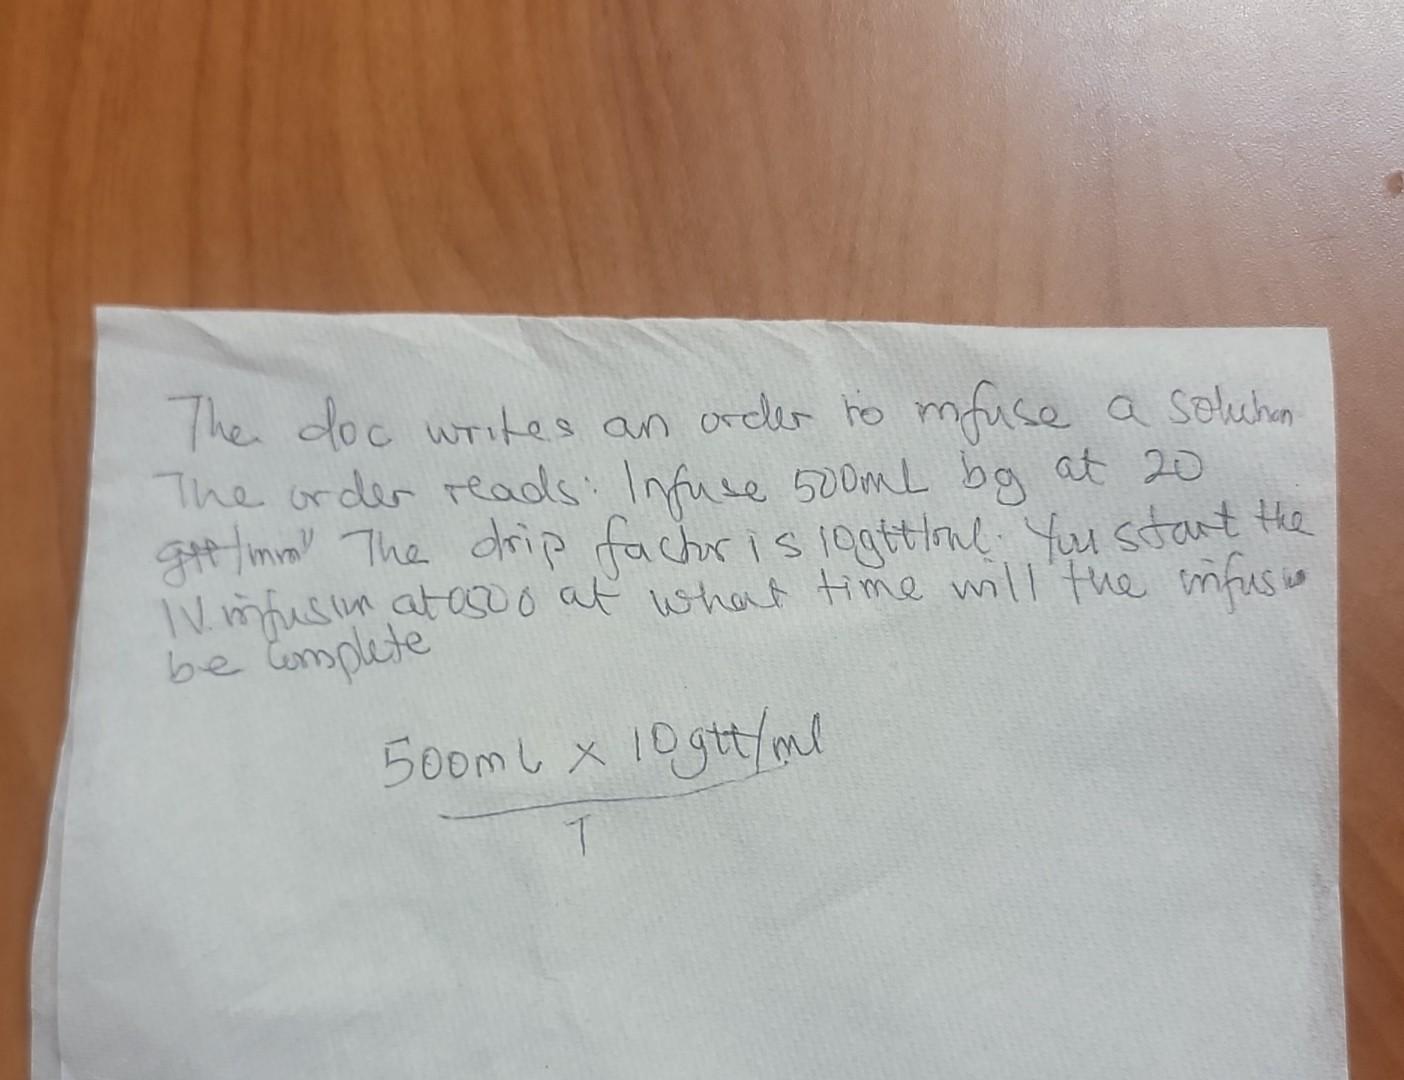 The doc writes an order to infuse a solution
The order reads: Infuse 500mL bg at 20
gtt/min" The drip factor is 10gtt/ml. You start the
IV. infusion at 0500 at what time will the infusio
be complete
500ml x 10gtt/ml
T